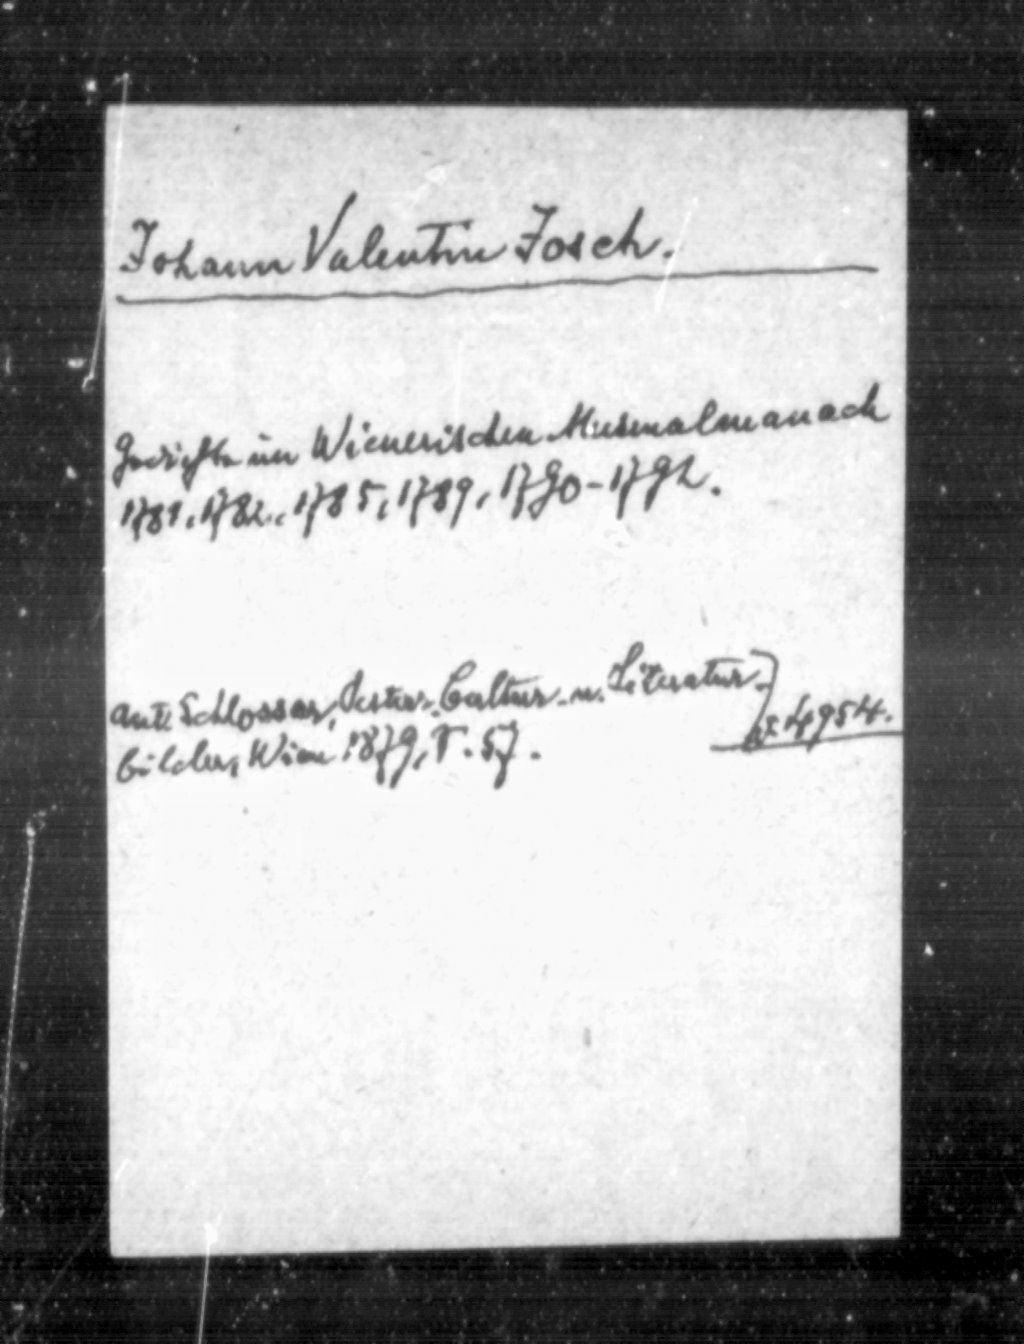 Johann Valentin Josch.
Gedichte im Wienerischen Musenalmanach
1781, 1782, 1785, 1789, 1790-1792.
Ant. Schlossar, Oesterr. Cultur- u. Literatur-
bilder, Wien 1879, S. 57.
4954.